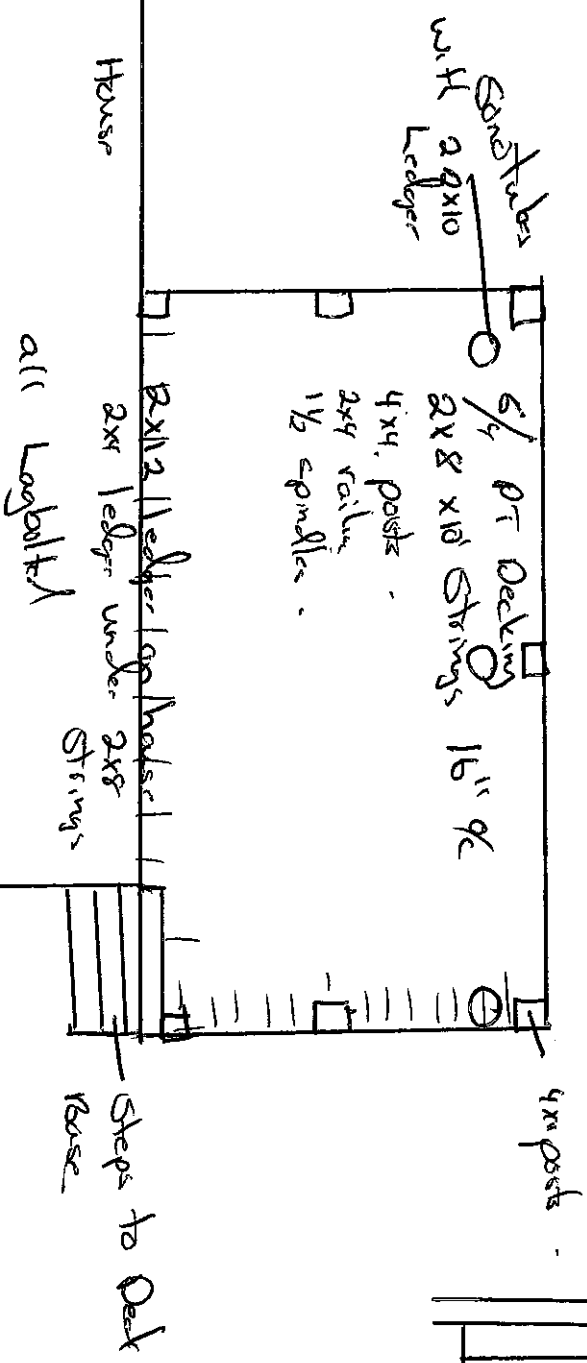 Sonotubes
with 2 2x10
Ledger
House
5/4 PT Decking
2x8 x10' Strings 16" o/c
4x4 posts .
2x4 railing
1 1/2 spindles .
2x12 ledger on house
2x4 ledger under 2x8
Strings
all Lagbolted
4x4 posts .
Steps to Deck